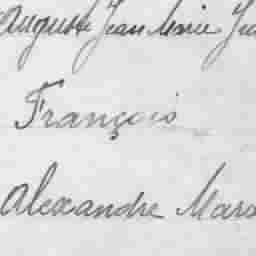 Auguste Jean Marie
François
Alexandre